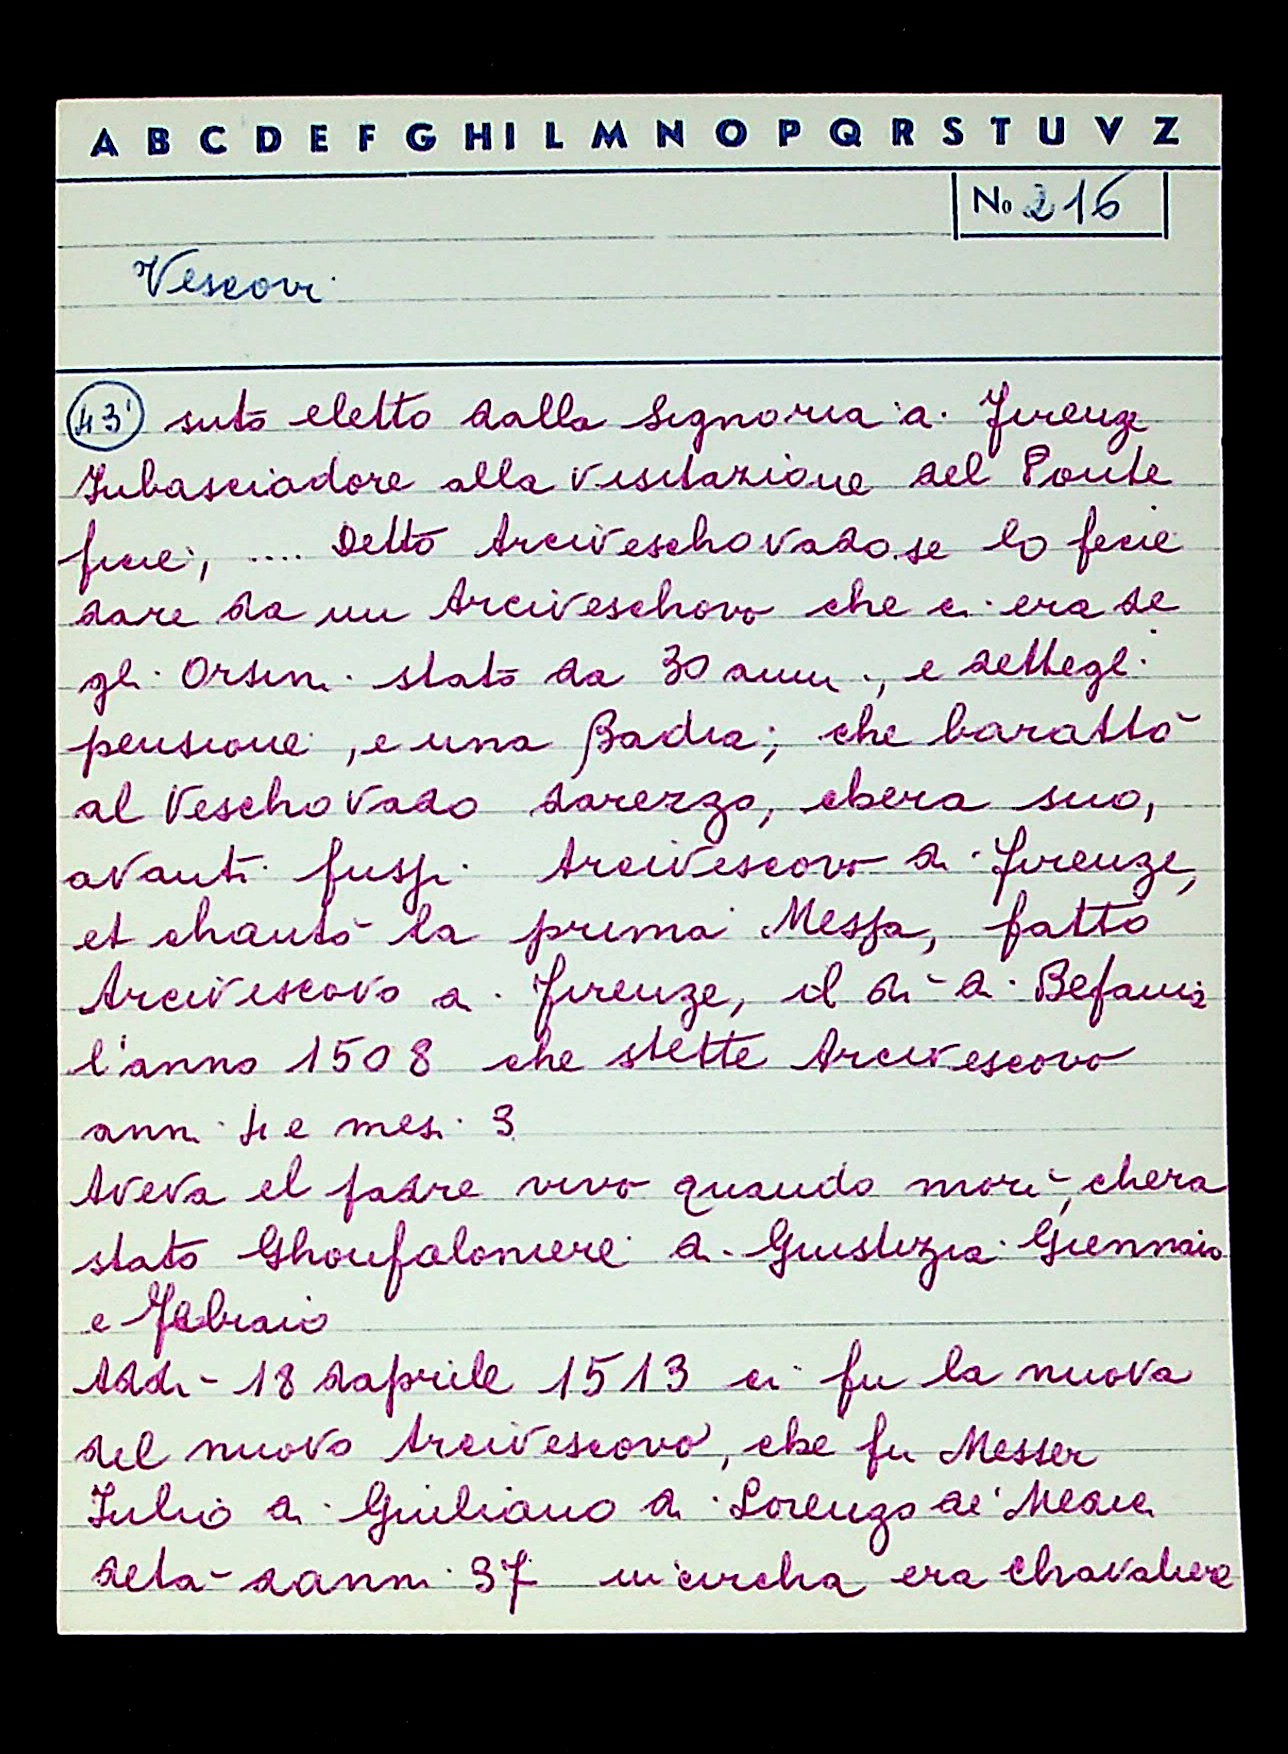 A B C D E F G H I L M N O P Q R S T U V Z
No 216
Vescovi
43' suto eletto dalla Signoria di Firenze
Inbasciadore alla visitazione del Ponte
ficie, .... Detto Arciveschovado se lo fecie
dare da un Arciveschovo che ci era de
gli Orsini stato da 30 anni, e dettegli
pensione, e una Badia; che barattò
al Veschovado darezzo, chera suo,
avanti fussi Arcivescovo di Firenze,
et chantò la prima Messa, fatto
Arcivescovo di Firenze, il dì di Befania
l'anno 1508 che stette Arcivescovo
anni 4 e mesi 3
Aveva el padre vivo quando morì, chera
stato Ghonfaloniere di Giustizia Giennaio
e Febraio
Addì 18 daprile 1513 ci fu la nuova
del nuovo Arcivescovo, che fu Messer
Iulio di Giuliano di Lorenzo de' Medici
detà danni 37 in circha era Chavaliere